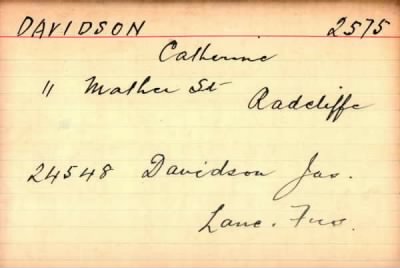 DAVIDSON 2575
Catherine
11 Mather St
Radcliffe
24548 Davidson Jas.
Lanc. Fus.